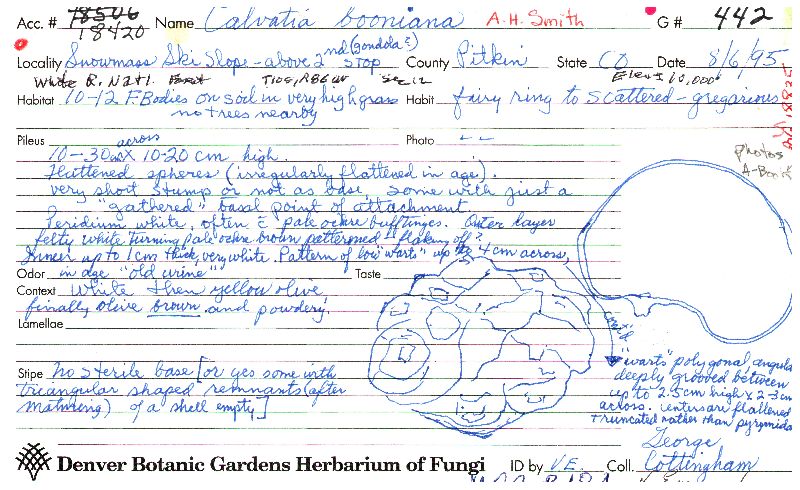 Acc. # 18506 Name Calvatia booniana A.H. Smith G# 442
18420
Locality Snowmass Ski Slope - above 2nd (gondola?) stop County Pitkin State CO Date 8/6/95
White R. Natl. Forest T10S, R86W Sec 12 Elev. 10,000'
Habitat 10-12 F Bodies on soil in very high grass Habit fairy ring to scattered - gregarious
no trees nearby
Pileus across Photo --
10-30 cm X 10-20 cm high. photos
flattened spheres (irregularly flattened in age).
very short stump or not as base, some with just a
"gathered" basal point of attachment
Peridium white, often c̄ pale ochre buff tinges. Outer layer
felty white turning pale ochre brown patterned "flaking off"?
Inner up to 1cm thick, very white. Pattern of low "warts" up to 4cm across,
Odor in age "old urine" Taste
Context White then yellow olive,
finally olive brown and powdery.
Lamellae
Stipe no sterile base [or yes some with
triangular shaped remnants (after
maturing) of a shell empty]
"warts" polygonal angular
deeply grooved between
up to 2.5cm high x 2-3cm
across. centers are flattened
truncated rather than pyramidal
Denver Botanic Gardens Herbarium of Fungi ID by V.E. Coll. George
Cottingham